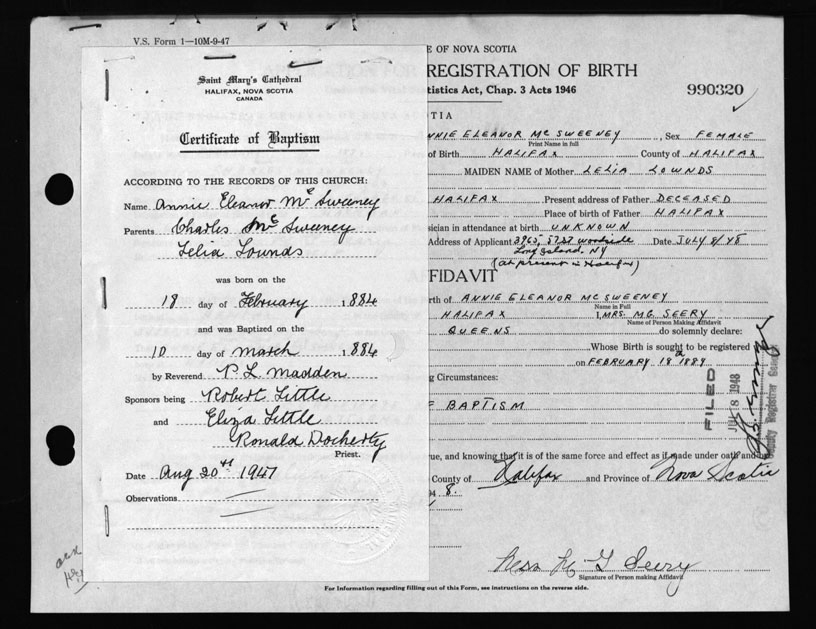 V.S. Form 1—10M-9-47
Saint Mary's Cathedral
HALIFAX, NOVA SCOTIA
CANADA
Certificate of Baptism
ACCORDING TO THE RECORDS OF THIS CHURCH:
Name Annie Eleanor Mc Sweeney
Parents Charles Mc Sweeney
Lelia Lounds
was born on the
18 day of February 1884
and was Baptized on the
10 day of March 1884
by Reverend P L Madden
Sponsors being Robert Little
and Eliza Little
Ronald Docherty
Priest.
Date Aug 20th 1947
Observations
E OF NOVA SCOTIA
REGISTRATION OF BIRTH
tistics Act, Chap. 3 Acts 1946
990320
TIA
NNIE ELEANOR MCSWEENEY, Sex FEMALE
Print Name in full
of Birth HALIFAX County of HALIFAX
MAIDEN NAME of Mother LELIA LOWNDS
HALIFAX Present address of Father DECEASED
Place of birth of Father HALIFAX
sician in attendance at birth UNKNOWN
Address of Applicant 3965, 57 St Woodside Date JULY 8/48
Long Island, NY
(at present in Halifax)
FFIDAVIT
rth of ANNIE ELEANOR MCSWEENEY
Name in Full
HALIFAX I, MRS. M.G. SEERY
Name of Person Making Affidavit
QUEENS do solemnly declare:
Whose Birth is sought to be registered
on FEBRUARY 18 1884
g Circumstances:
F BAPTISM
FILED
JUL 8 1948
Deputy Registrar General
rue, and knowing that it is of the same force and effect as if made under oath and
County of Halifax and Province of Nova Scotia
8.
Mrs M G Seery
Signature of Person making Affidavit
For Information regarding filling out of this Form, see instructions on the reverse side.